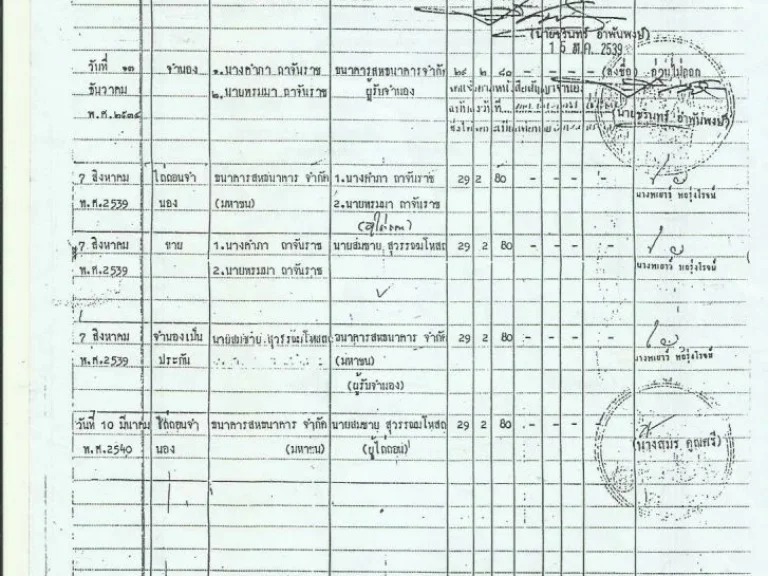 (นายชรินทร์ อำพันพงษ์)
15 ต.ค. 2539
วันที่ ๑๓ จำนอง ๑.นางคำภา ถาจันราช ธนาคารสหธนาคารจำกัด ๒๙ ๒ ๘๐ - - - - (ลงชื่อ) อ่านไม่ออก
ธันวาคม ๒.นายพรมมา ถาจันราช ผู้รับจำนอง
พ.ศ.๒๕๓๔ (นายชรินทร์ อำพันพงษ์)
7 สิงหาคม ไถ่ถอนจำ ธนาคารสหธนาคาร จำกัด 1.นางคำภา ถาจันราช 29 2 80 - - - -
พ.ศ.2539 นอง (มหาชน) 2.นายพรมมา ถาจันราช
(ผู้ไถ่ถอน)
7 สิงหาคม ขาย 1.นางคำภา ถาจันราช นายสมชาย สุวรรณมโหสถ 29 2 80 - - - -
พ.ศ.2539 2.นายพรมมา ถาจันราช
7 สิงหาคม จำนองเป็น นายสมชาย สุวรรณมโหสถ ธนาคารสหธนาคาร จำกัด 29 2 80 - - - -
พ.ศ.2539 ประกัน (มหาชน)
(ผู้รับจำนอง)
วันที่ 10 มีนาคม ไถ่ถอนจำ ธนาคารสหธนาคาร จำกัด นายสมชาย สุวรรณมโหสถ 29 2 80 - - - -
พ.ศ.2540 นอง (มหาชน) (ผู้ไถ่ถอน) (นางสุมร คูณศรี)